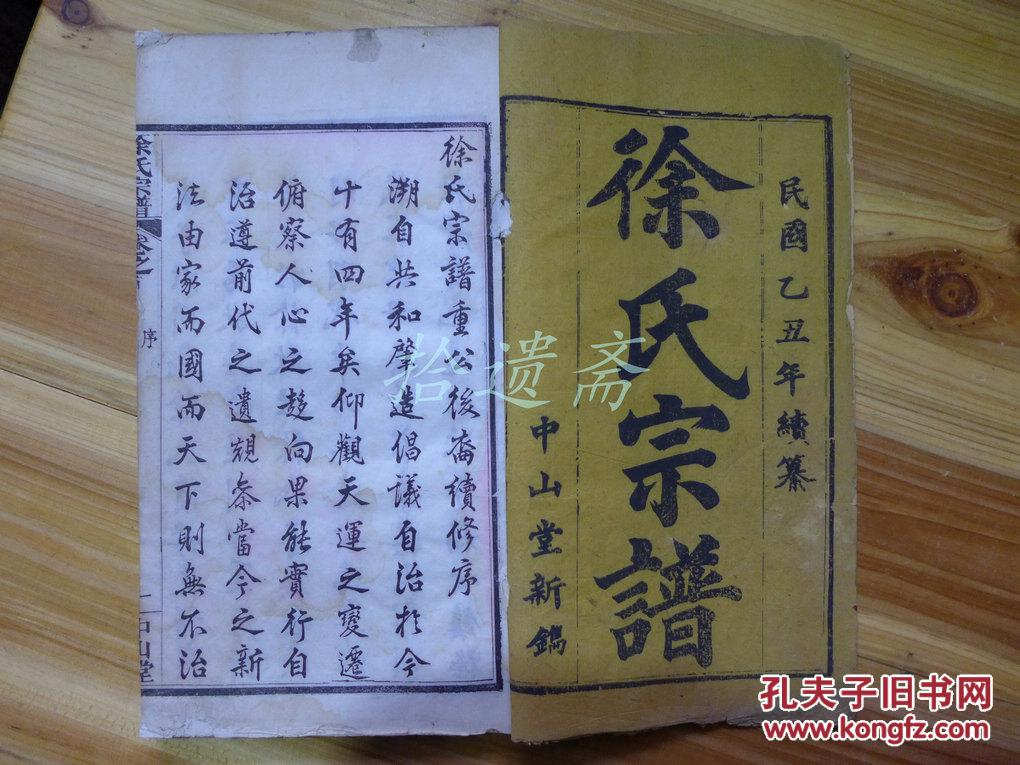 民國乙丑年續纂
徐氏宗譜
中山堂新鐫
徐氏宗譜重公後裔續修序
溯自共和肇造倡議自治於今
十有四年矣仰觀天運之變遷
俯察人心之趍向果能實行自
治遵前代之遺規叅當今之新
法由家而國而天下則無不治
徐氏宗譜
卷之
序
中山堂
拾遗斋
孔夫子旧书网
www.kongfz.com